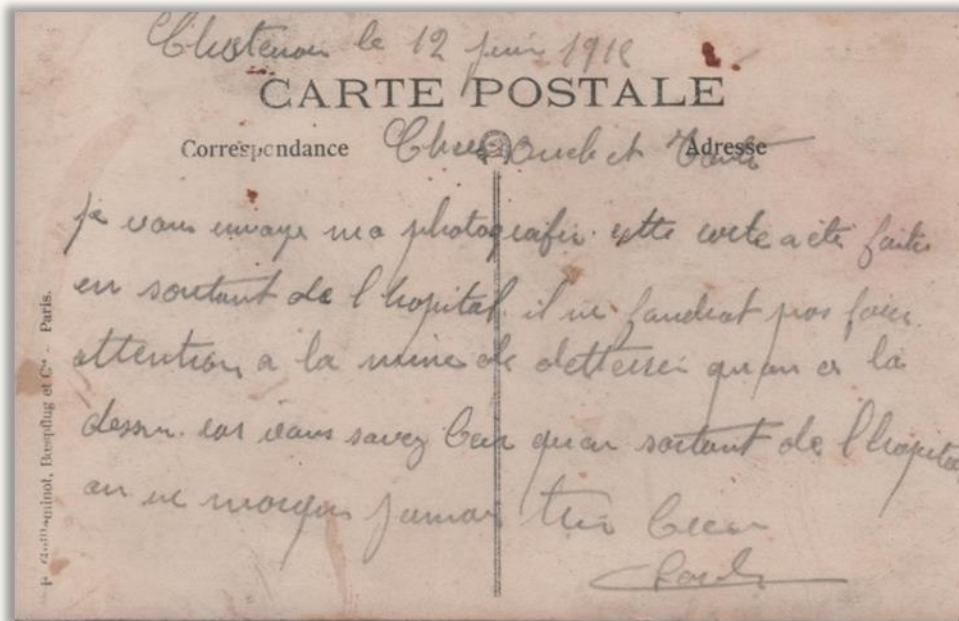 le 12 juin 191
CARTE POSTALE
Correspondance
Adresse
Cher Oncle et Tante
je vous envoye ma photografie cette carte a été faite
en sortant de l hopital il ne faudrat pas faire
attention a la mine de quon a la
dessu car vous savez bien quen sortant de l hopital
on ne marque jamai trés bien
Paris.